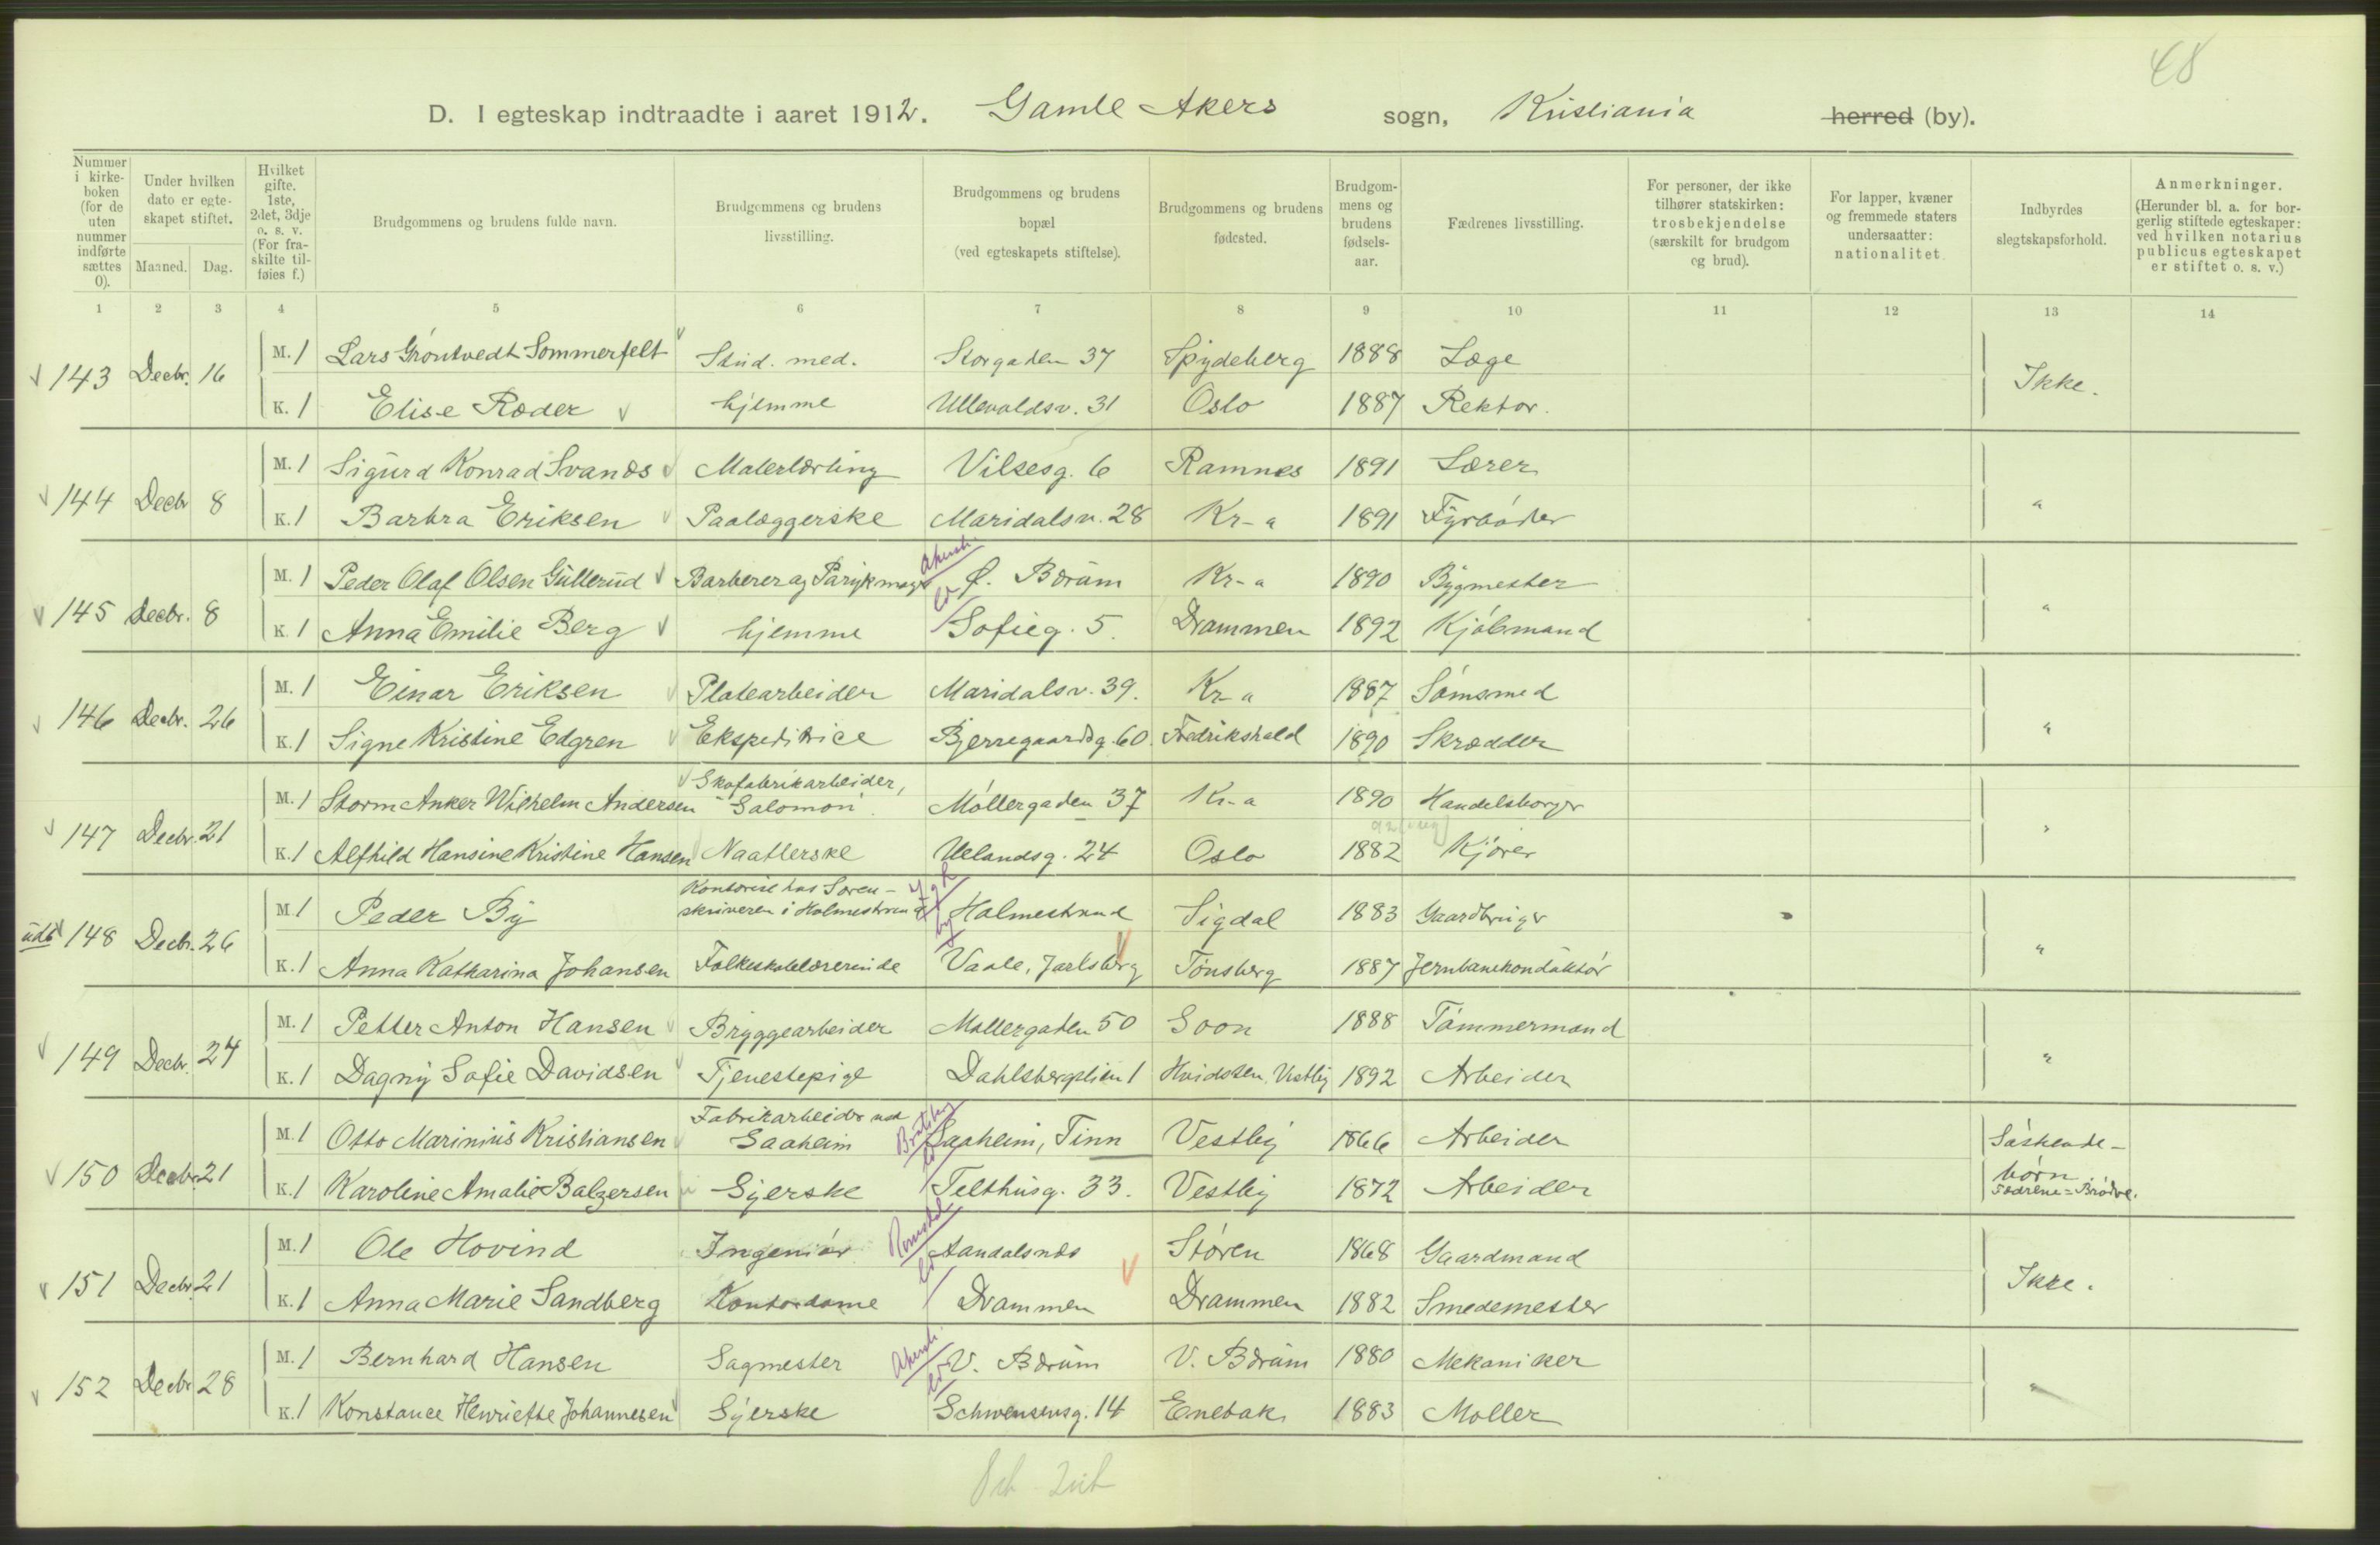 48
D. I egteskap indtraadte i aaret 1912. Gamle Akers sogn, Kristiania herred (by).
Nummer i kirkeboken (for de uten nummer indførte sættes 0).
Under hvilken dato er egteskapet stiftet.
Maaned. Dag.
Hvilket gifte. 1ste, 2det, 3dje o. s. v. (For fraskilte tilføies f.)
Brudgommens og brudens fulde navn.
Brudgommens og brudens livsstilling.
Brudgommens og brudens bopæl (ved egteskapets stiftelse).
Brudgommens og brudens fødested.
Brudgommens og brudens fødselsaar.
Fædrenes livsstilling.
For personer, der ikke tilhører statskirken: trosbekjendelse (særskilt for brudgom og brud).
For lapper, kvæner og fremmede staters undersaatter: nationalitet.
Indbyrdes slegtskapsforhold.
Anmerkninger. (Herunder bl. a. for borgerlig stiftede egteskaper: ved hvilken notarius publicus egteskapet er stiftet o. s. v.)
1 2 3 4 5 6 7 8 9 10 11 12 13 14
143 Decbr. 16 M. 1 Lars Gröntvedt Sommerfelt Stud. med. Storgaden 37 Spydeberg 1888 Læge Ikke.
K. 1 Elise Ræder hjemme Ullevoldsv. 31 Oslo 1887 Rektor.
144 Decbr 8 M. 1 Sigurd Konrad Svanæs Malerlærling Vilsesg. 6 Ramnes 1891 Lærer "
K. 1 Barbra Eriksen Paalæggerske Maridalsv. 28 Kr-a 1891 Fyrbøder
145 Decbr. 8 M. 1 Peder Olaf Olsen Gullerud Barberer og Parykmager Akersh. Ø. Bærum Kr-a 1890 Bygmester "
K. 1 Anna Emilie Berg hjemme Sofieg. 5. Drammen 1892 Kjøbmand
146 Decbr. 26 M. 1 Einar Eriksen Platearbeider Maridalsv. 39. Kr-a 1887 Sømsmed "
K. 1 Signe Kristine Edgren Ekspeditrice Bjerregaardsg. 60. Fredrikshald 1890 Skrædder
147 Decbr. 21 M. 1 Storm Anker Wilhelm Andersen Skofabrikarbeider, "Salomon". Møllergaden 37 Kr-a 1890 Handelsborger "
K. 1 Alfhild Hansine Kristine Hansen Naatlerske Uelandsg. 24 Oslo 1882 Kjører
148 Decbr. 26 M. 1 Peder By Kontorist hos Soren-
skriveren i Holmestrand Holmestrand Sigdal 1883 Gaardbruger "
K. 1 Anna Katharina Johansen Folkeskolelærerinde Vaale, Jarlsberg Tönsberg 1887 Jernbanekonduktör
149 Decbr. 24 M. 1 Petter Anton Hansen Bryggearbeider Møllergaden 50 Soon 1888 Tømmermand "
K. 1 Dagny Sofie Davidsen Tjenestepige Dahlsbergstien 1 Hvidsten, Vestby 1892 Arbeider
150 Decbr. 21 M. 1 Otto Marinius Kristiansen Fabrikarbeider ved
Saaheim Bratsby Saaheim, Tinn Vestby 1866 Arbeider Søskende-
børn
Fædrene = Brødre.
K. 1 Karoline Amalie Balzersen Syerske Telthusg. 33. Vestby 1872 Arbeider
151 Decbr. 21 M. 1 Ole Hovind Ingeniør Romsdal Aandalsnæs Støren 1868 Gaardmand Ikke.
K. 1 Anna Marie Sandberg Kontordame Drammen Drammen 1882 Smedemester
152 Decbr 28 M. 1 Bernhard Hansen Sagmester Akersh. V. Bærum V. Bærum 1880 Mekaniker "
K. 1 Konstance Henriette Johannesen Syerske Schwensensg. 14 Enebak 1883 Møller